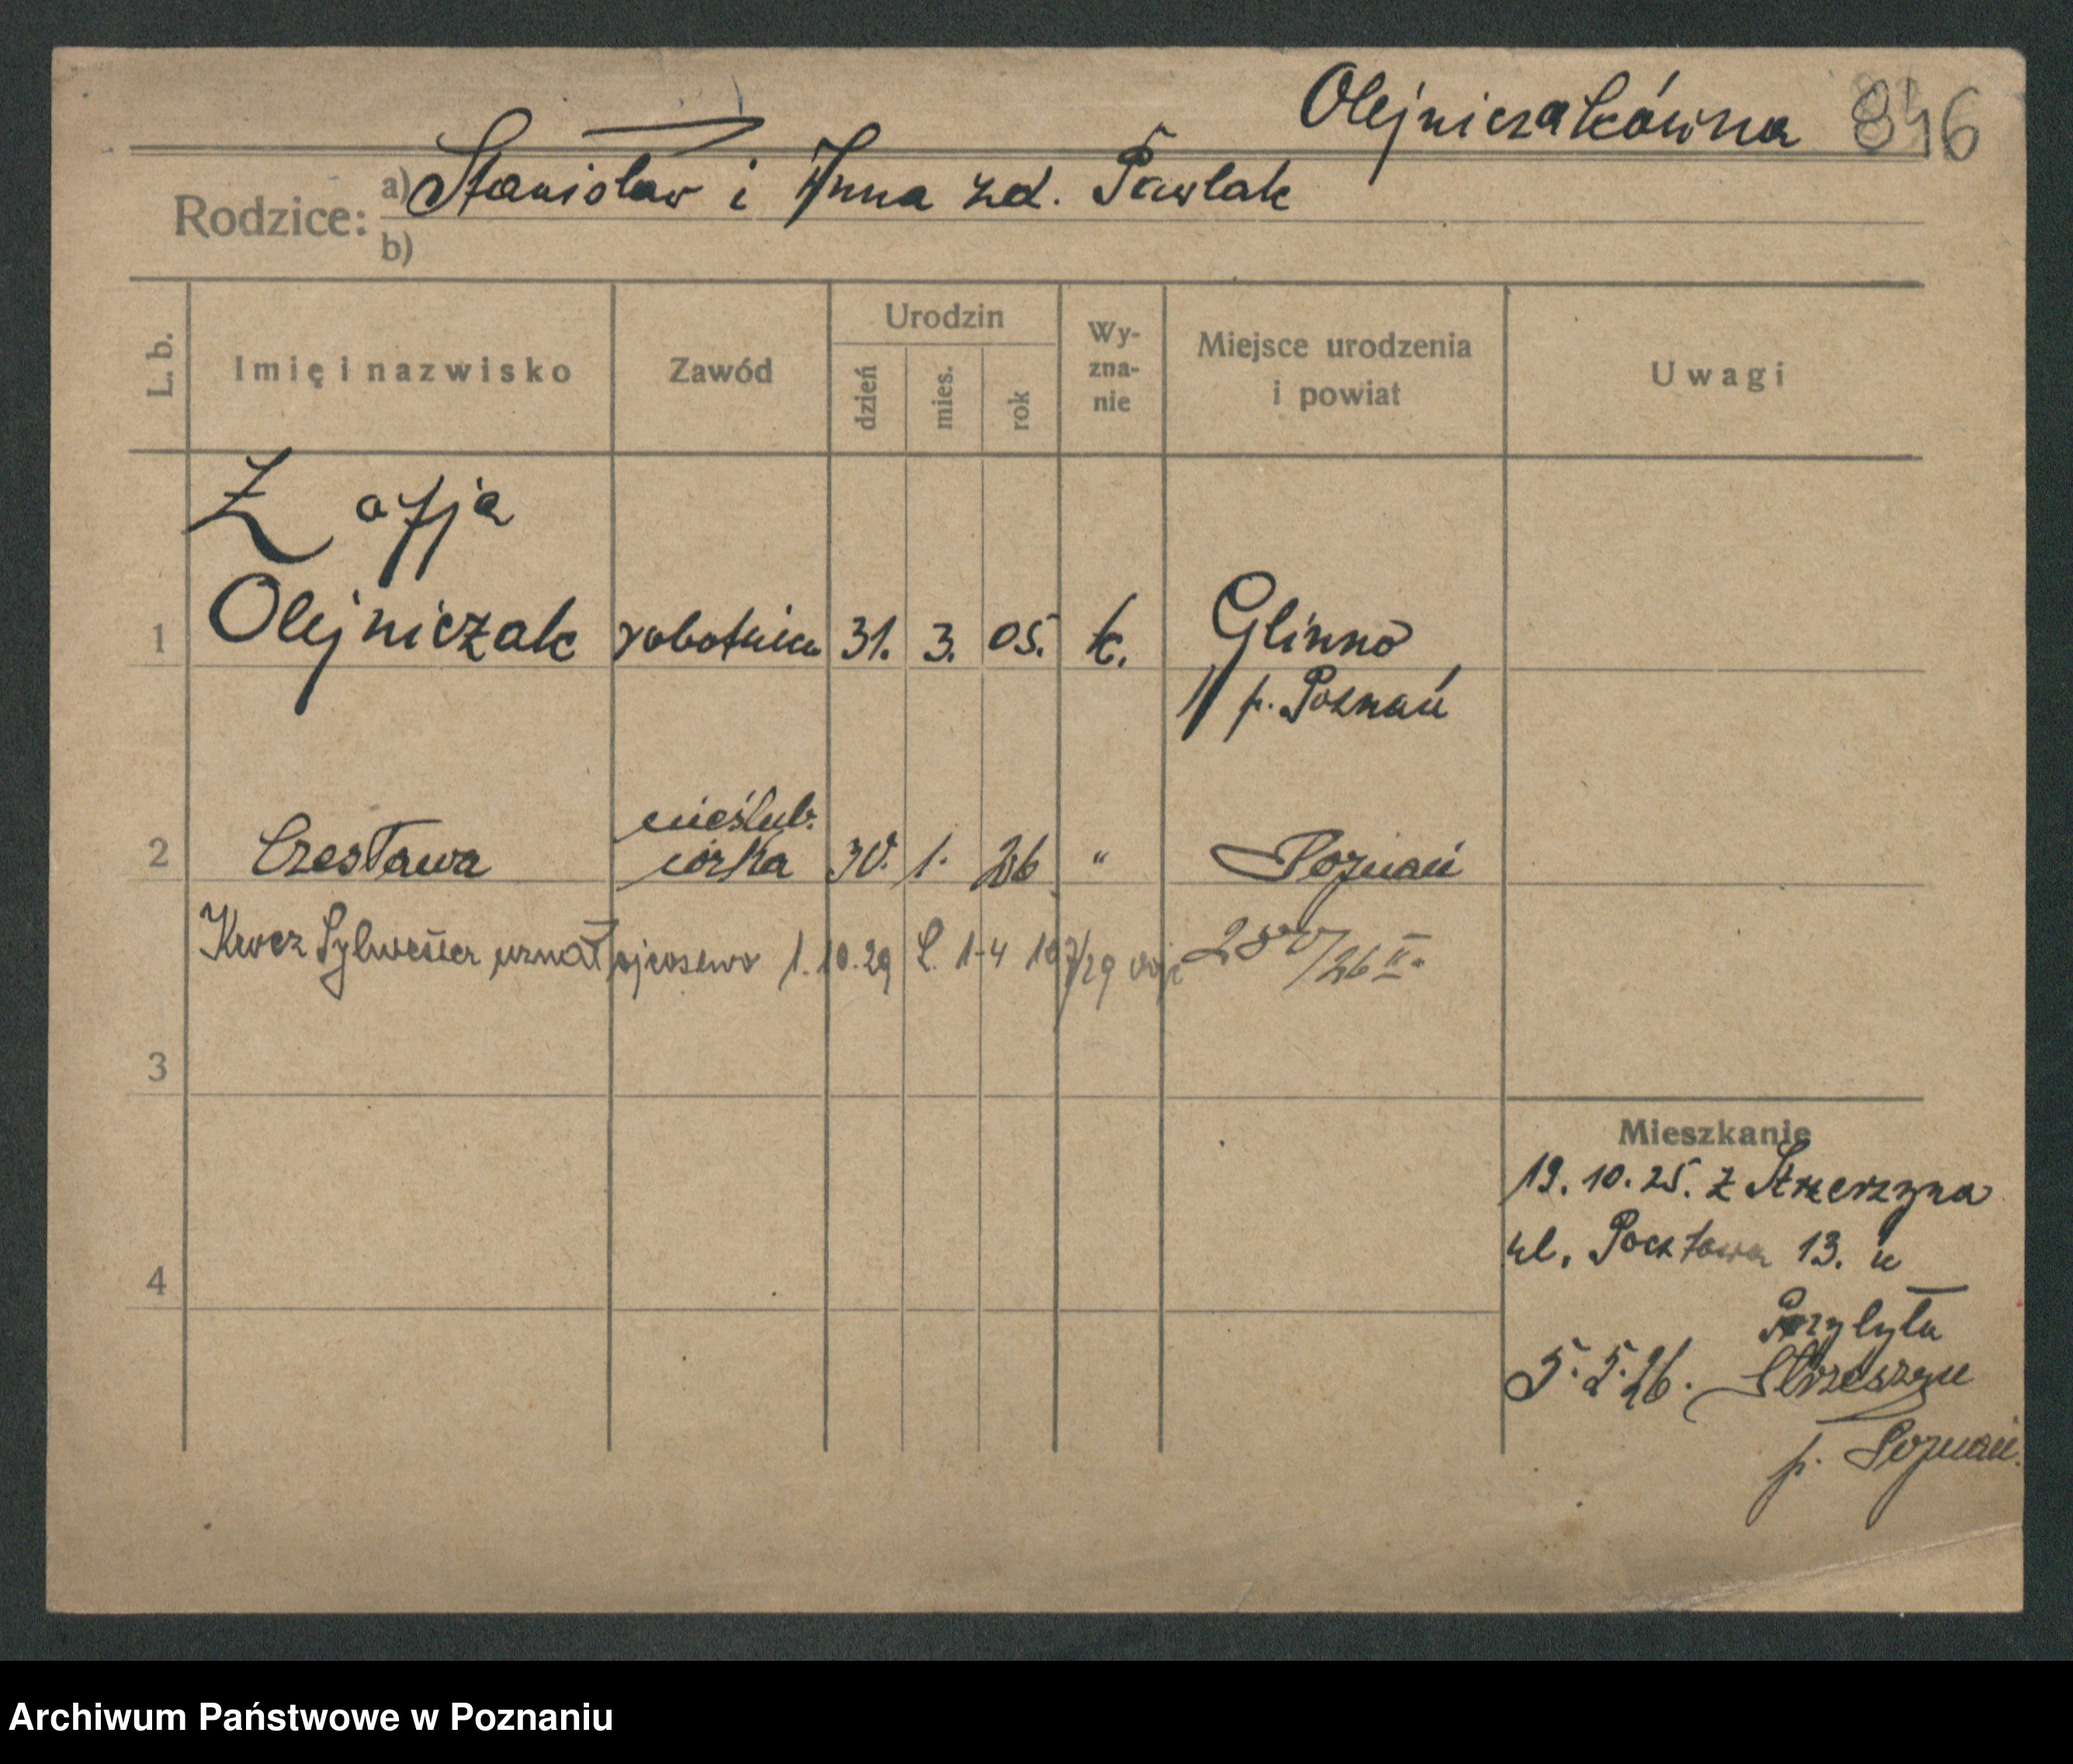 Olejniczakówna 846
Rodzice: a) Stanisław i Anna zd. Pawlak
b)
L. b. Imię i nazwisko Zawód Urodzin dzień mies. rok Wy-zna-nie Miejsce urodzenia i powiat Uwagi
Zofja
1 Olejniczak robotnica 31. 3. 05. k. Glinno
p. Poznań
nieślub.
2 Czesława córka 30. 1. 26 " Poznań
Sylwester uznał ojcostwo 1.10.29 L. 1-4 107/29
/26 II.
3
Mieszkanie
19. 10. 25. z Strzeszyna
ul. Pocztowa 13. u
4
Przybyła
5. 5. 26. Strzeszyn
p. Poznań.
Archiwum Państwowe w Poznaniu